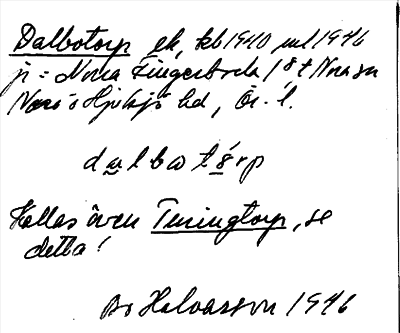 Dalbotorp gk, kb 1940 jul 1946
p = Norra Fingerboda / st Nora sn
Nora o Hjulsjö hd, Ör. l.
dalbatårp
Kallas även Tuningtorp, se
detta!
Bo Halvarsson 1946